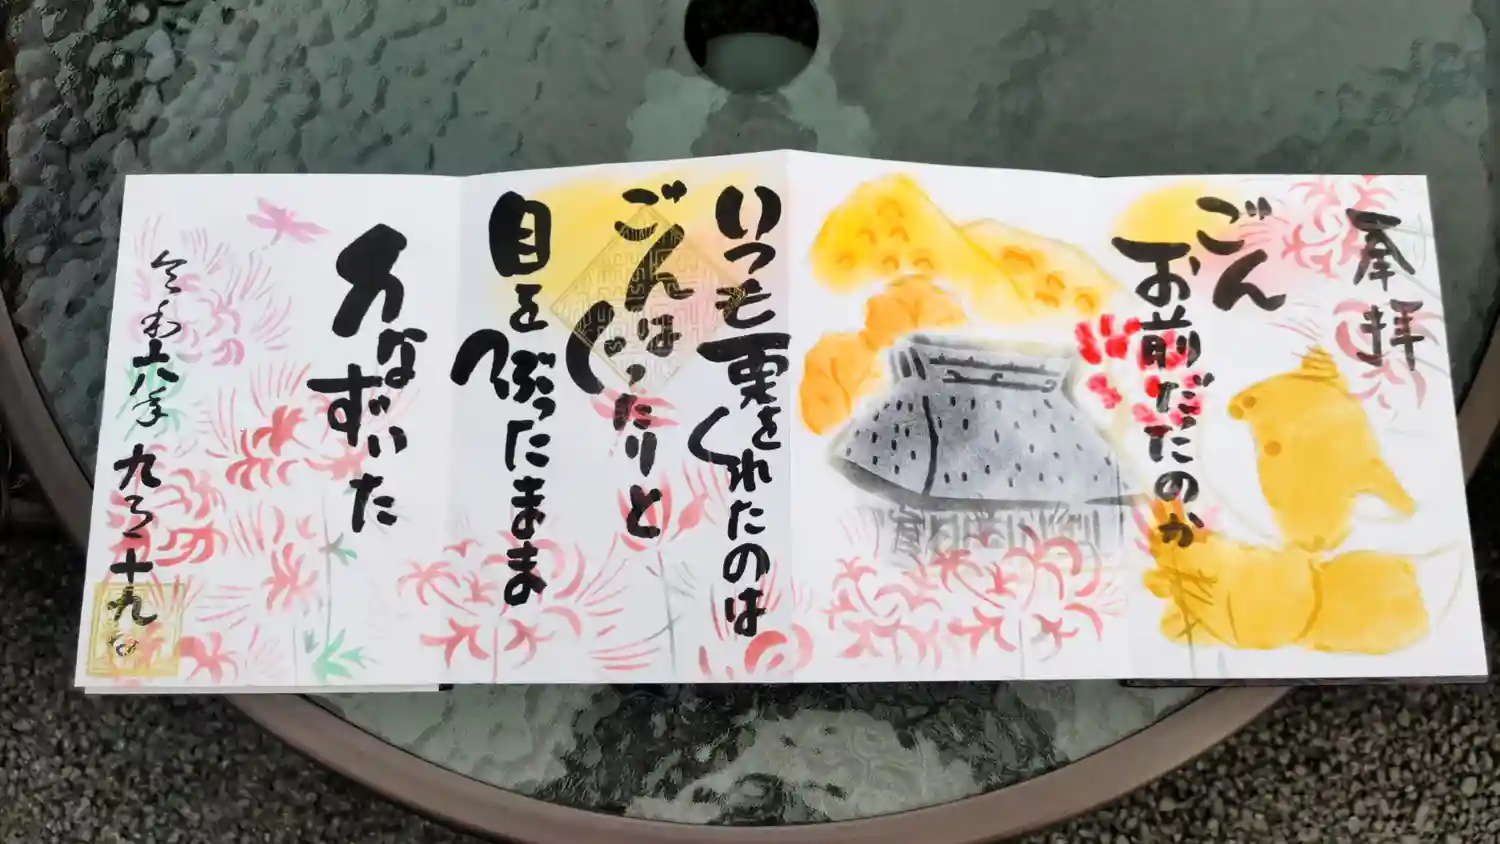 奉拝
ごん
お前だたのか
いつも栗をくれたのは
ごんはぐったりと
目をつぶったまま
うなずいた
令和六年九月十九日